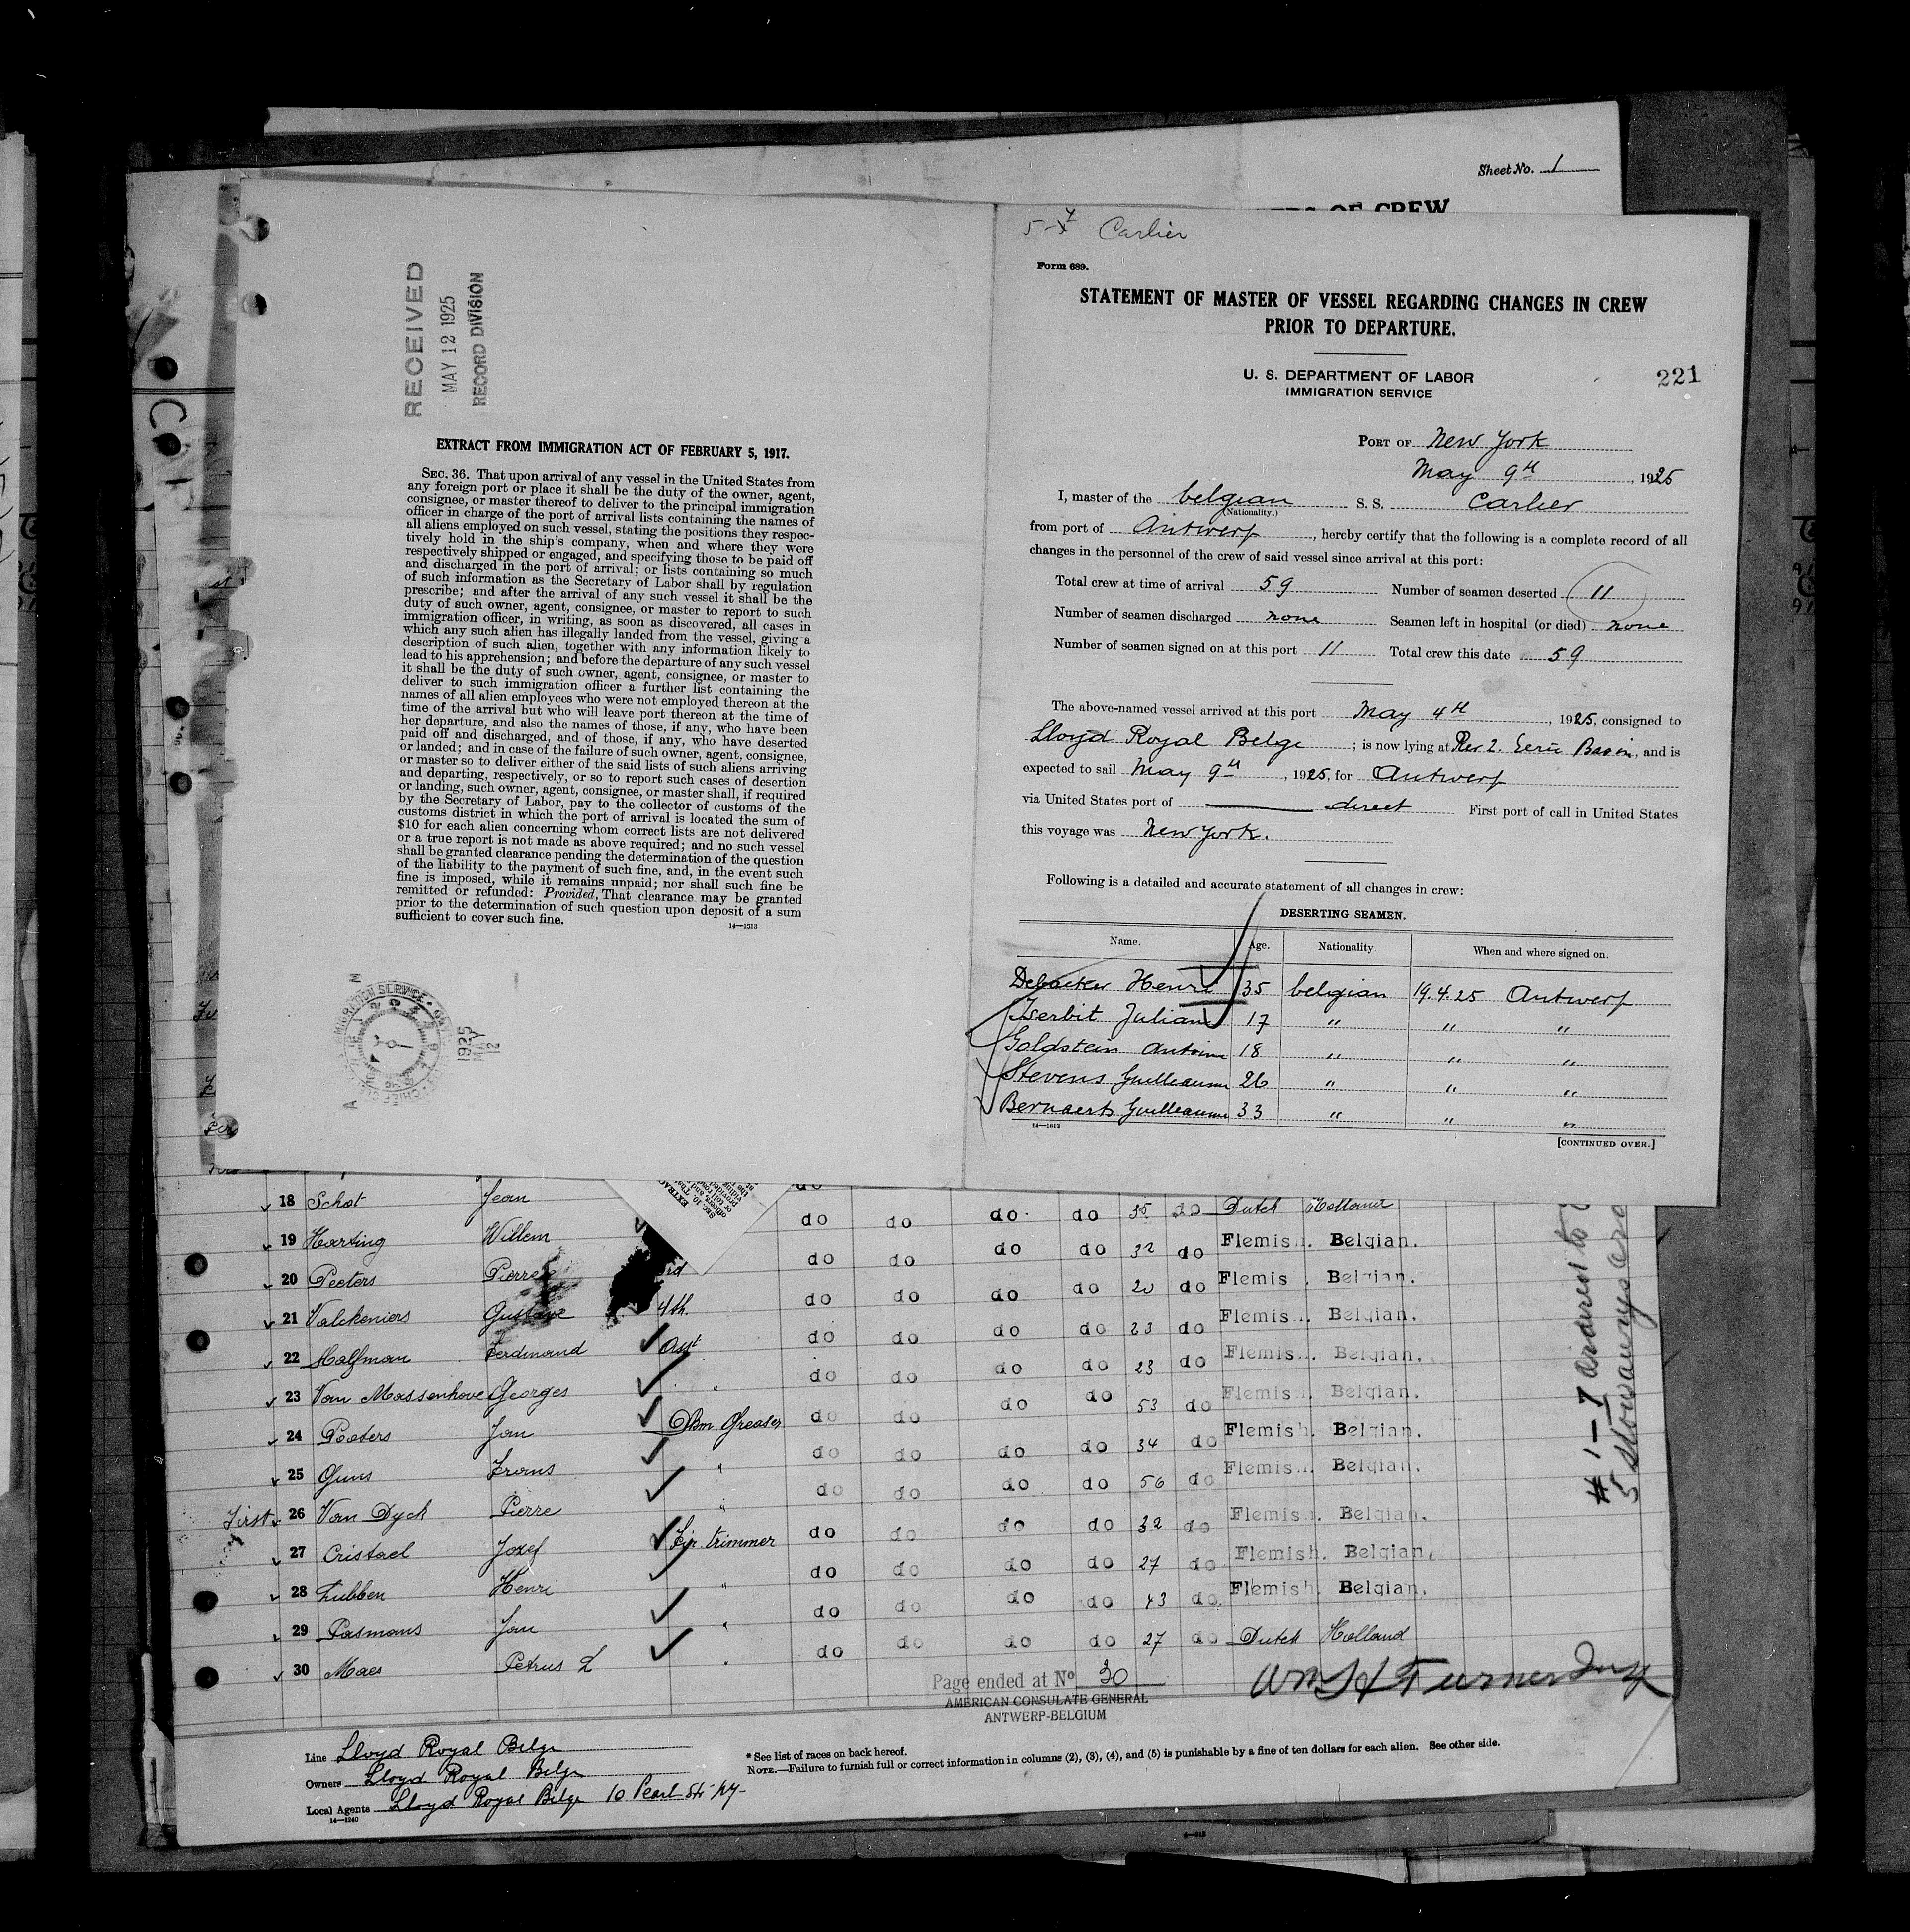 Sheet No. 1
OF CREW
RECEIVED
MAY 12 1925
RECORD DIVISION
EXTRACT FROM IMMIGRATION ACT OF FEBRUARY 5, 1917.
SEC. 36. That upon arrival of any vessel in the United States from
any foreign port or place it shall be the duty of the owner, agent,
consignee, or master thereof to deliver to the principal immigration
officer in charge of the port of arrival lists containing the names of
all aliens employed on such vessel, stating the positions they respec-
tively hold in the ship's company, when and where they were
respectively shipped or engaged, and specifying those to be paid off
and discharged in the port of arrival; or lists containing so much
of such information as the Secretary of Labor shall by regulation
prescribe; and after the arrival of any such vessel it shall be the
duty of such owner, agent, consignee, or master to report to such
immigration officer, in writing, as soon as discovered, all cases in
which any such alien has illegally landed from the vessel, giving a
description of such alien, together with any information likely to
lead to his apprehension; and before the departure of any such vessel
it shall be the duty of such owner, agent, consignee, or master to
deliver to such immigration officer a further list containing the
names of all alien employees who were not employed thereon at the
time of the arrival but who will leave port thereon at the time of
her departure, and also the names of those, if any, who have been
paid off and discharged, and of those, if any, who have deserted
or landed; and in case of the failure of such owner, agent, consignee,
or master so to deliver either of the said lists of such aliens arriving
and departing, respectively, or so to report such cases of desertion
or landing, such owner, agent, consignee, or master shall, if required
by the Secretary of Labor, pay to the collector of customs of the
customs district in which the port of arrival is located the sum of
$10 for each alien concerning whom correct lists are not delivered
or a true report is not made as above required; and no such vessel
shall be granted clearance pending the determination of the question
of the liability to the payment of such fine, and, in the event such
fine is imposed, while it remains unpaid; nor shall such fine be
remitted or refunded: Provided, That clearance may be granted
prior to the determination of such question upon deposit of a sum
sufficient to cover such fine.
14—1513
1925
MAY
12
Carlier
Form 689.
STATEMENT OF MASTER OF VESSEL REGARDING CHANGES IN CREW
PRIOR TO DEPARTURE.
U. S. DEPARTMENT OF LABOR
IMMIGRATION SERVICE
221
PORT OF New York
May 9th, 1925
I, master of the belgian S. S. Carlier
(Nationality.)
from port of Antwerp, hereby certify that the following is a complete record of all
changes in the personnel of the crew of said vessel since arrival at this port:
Total crew at time of arrival 59 Number of seamen deserted 11
Number of seamen discharged none Seamen left in hospital (or died) none
Number of seamen signed on at this port 11 Total crew this date 59
The above-named vessel arrived at this port May 4th, 1925, consigned to
Lloyd Royal Belge; is now lying at Pier 2. Basin, and is
expected to sail May 9th, 1925, for Antwerp
via United States port of direct First port of call in United States
this voyage was New York.
Following is a detailed and accurate statement of all changes in crew:
DESERTING SEAMEN.
Name. Age. Nationality When and where signed on.
Debacker Henri 35 belgian 19.4.25 Antwerp
Iserbit Julian 17 " " "
Goldstein Antoine 18 " " "
Stevens Guilleaume 26 " " "
Bernaerts Guilleaume 33 " " "
14—1613
[CONTINUED OVER.]
18 Schot Jean do do do do 35 do Dutch Holland
19 Harting Willem do do do do 32 do Flemish. Belgian.
20 Peeters Pierre 3rd do do do do 20 do Flemish. Belgian.
21 Valckeniers Gustave 4th. do do do do 23 do Flemish. Belgian.
22 Halfman Ferdinand Asst do do do do 23 do Flemish. Belgian.
23 Van Massenhove Georges " do do do do 53 do Flemish. Belgian.
24 Peeters Jan Greaser do do do do 34 do Flemish. Belgian.
25 Guns Frans " do do do do 56 do Flemish. Belgian.
First 26 Van Dyck Pierre " do do do do 32 do Flemish. Belgian.
27 Cristael Jozef trimmer do do do do 27 do Flemish. Belgian.
28 Lubben Henri " do do do do 43 do Flemish. Belgian.
29 Pasmans Jan " do do do do 27 do Dutch Holland
30 Maes Petrus L "
Page ended at No 30
AMERICAN CONSULATE GENERAL
ANTWERP-BELGIUM
Wm H Turner Insp
# 1-7 ordered to
5 stowaways
Line Lloyd Royal Belge
Owners Lloyd Royal Belge
Local Agents Lloyd Royal Belge 10 Pearl St. NY.
14—1240
* See list of races on back hereof.
NOTE.—Failure to furnish full or correct information in columns (2), (3), (4), and (5) is punishable by a fine of ten dollars for each alien. See other side.